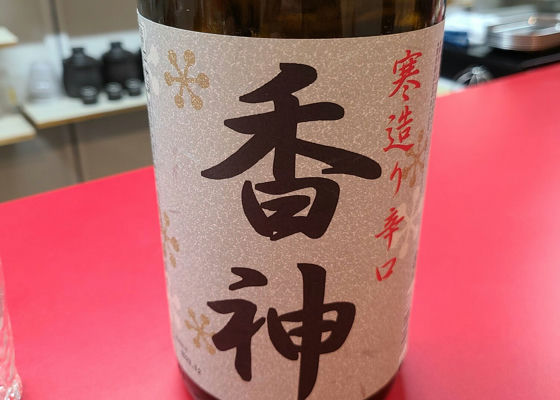 寒造り 辛口
香神